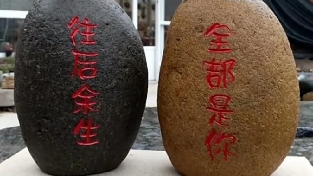 往后余生
全都是你